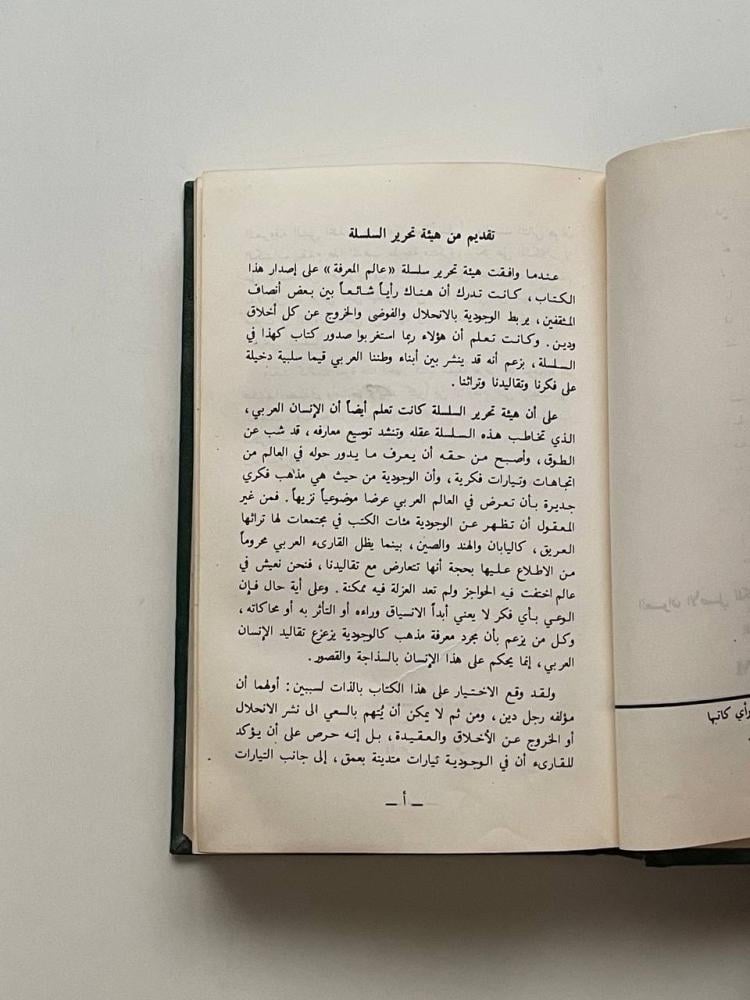 تقديم من هيئة تحرير السلسلة
عندما وافقت هيئة تحرير سلسلة «عالم المعرفة» على إصدار هذا
الكتاب، كانت تدرك أن هناك رأياً شائعاً بين بعض أنصاف
المثقفين، يربط الوجودية بالانحلال والفوضى والخروج عن كل أخلاق
ودين. وكانت تعلم أن هؤلاء ربما استغربوا صدور كتاب كهذا في
السلسلة، بزعم أنه قد ينشر بين أبناء وطننا العربي قيما سلبية دخيلة
على فكرنا وتقاليدنا وتراثنا.
على أن هيئة تحرير السلسلة كانت تعلم أيضاً أن الإنسان العربي،
الذي تخاطب هذه السلسلة عقله وتنشد توسيع معارفه، قد شب عن
الطوق، وأصبح من حقه أن يعرف ما يدور حوله في العالم من
اتجاهات وتيارات فكرية، وأن الوجودية من حيث هي مذهب فكري
جديرة بأن تعرض في العالم العربي عرضا موضوعياً نزيهاً. فمن غير
المعقول أن تظهر عن الوجودية مئات الكتب في مجتمعات لها تراثها
العريق، كاليابان والهند والصين، بينما يظل القارىء العربي محروماً
من الاطلاع عليها بحجة أنها تتعارض مع تقاليدنا، فنحن نعيش في
عالم اختفت فيه الحواجز ولم تعد العزلة فيه ممكنة. وعلى أية حال فإن
الوعي بأي فكر لا يعني أبداً الانسياق وراءه أو التأثر به أو محاكاته،
وكل من يزعم بأن مجرد معرفة مذهب كالوجودية يزعزع تقاليد الإنسان
العربي، إنما يحكم على هذا الإنسان بالسذاجة والقصور.
ولقد وقع الاختيار على هذا الكتاب بالذات لسببين: أولهما أن
مؤلفه رجل دين، ومن ثم لا يمكن أن يُتهم بالسعي الى نشر الانحلال
أو الخروج عن الأخلاق والعقيدة، بل إنه حرص على أن يؤكد
للقارىء أن في الوجودية تيارات متدينة بعمق، إلى جانب التيارات
— أ —
رأي كاتبها